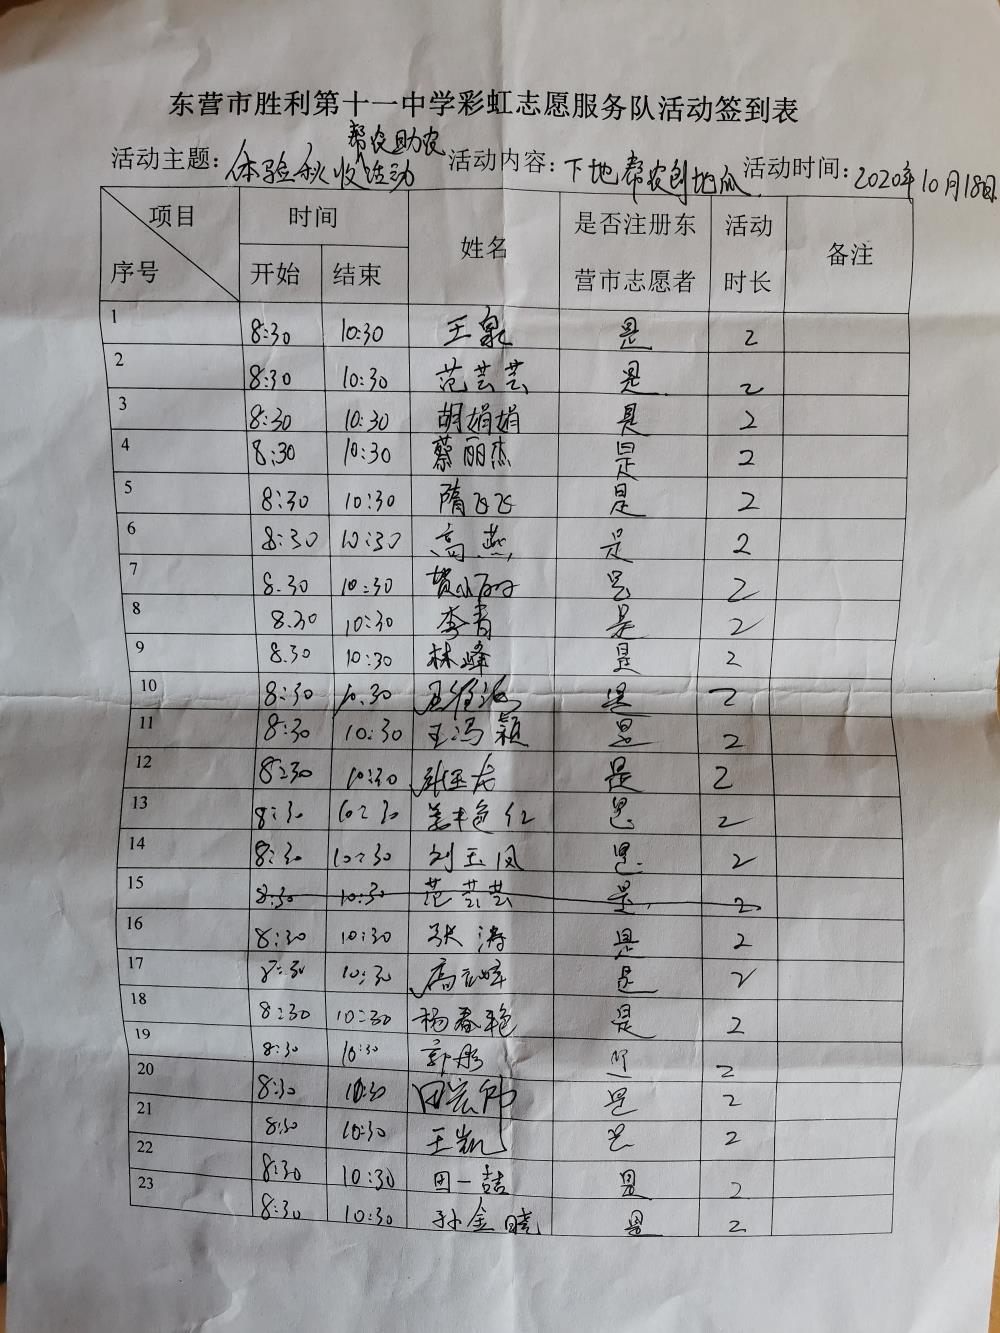 东营市胜利第十一中学彩虹志愿服务队活动签到表
帮农助农
活动主题：体验秋收活动 活动内容：下地帮农刨地瓜 活动时间：2020年10月18日
项目 时间 姓名 是否注册东 活动 备注
序号 开始 结束 营市志愿者 时长
1 8:30 10:30 王泉 是 2
2 8:30 10:30 范芸芸 是 2
3 8:30 10:30 胡娟娟 是 2
4 8:30 10:30 蔡丽杰 是 2
5 8:30 10:30 隋飞飞 是 2
6 8:30 10:30 高燕 是 2
7 8.30 10:30 是 2
8 8.30 10:30 李青 是 2
9 8.30 10:30 林峰 是 2
10 8:30 10.30 是 2
11 8:30 10:30 王冯颖 是 2
12 8:30 10:30 是 2
13 8:30 10:30 是 2
14 8:30 10:30 刘玉凤 是 2
15 8:30 10:30 范芸芸 是 2
16 8:30 10:30 张涛 是 2
17 8:30 10:30 是 2
18 8:30 10:30 杨春艳 是 2
19 8:30 10:30 郭彤 2
20 8:30 10:30 田宏帅 是 2
21 8:30 10:30 王凯 是 2
22 8:30 10:30 田一喆 是 2
23 8:30 10:30 孙金晓 是 2